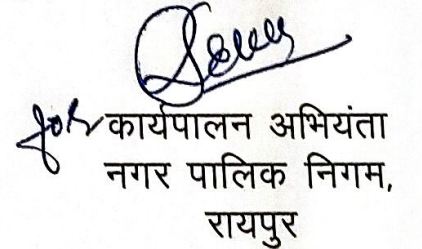 for कार्यपालन अभियंता
नगर पालिक निगम,
रायपुर